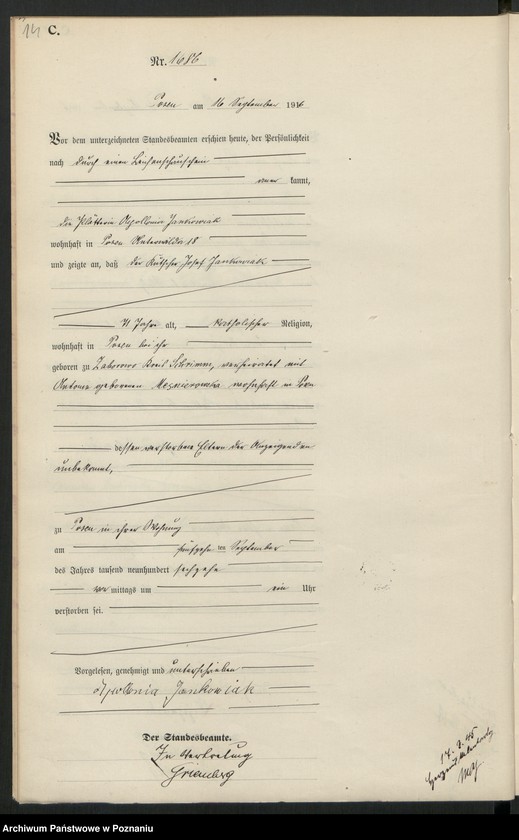 14 C.
Nr. 1686
Posen am 16 September 1916
Vor dem unterzeichneten Standesbeamten erschien heute, der Persönlichkeit
nach durch einen Leichenschauschein
aner kannt,
die Plätterin Apollonia Jankowiak
wohnhaft in Posen 18
und zeigte an, daß der Kutscher Josef Jankowiak
71 Jahre alt, katholischer Religion,
wohnhaft in Posen bei ihr
geboren zu Zaborowo Kreis Schrimm, verheiratet mit
Antonie geborenen wohnhaft in Posen
dessen verstorbene Eltern der Anzeigenden
unbekannt,
zu Posen in ihrer Wohnung
am fünfzehn ten September
des Jahres tausend neunhundert sechzehn
vor mittags um ein Uhr
verstorben sei.
Vorgelesen, genehmigt und unterschrieben
Apolonia Jankowiak
Der Standesbeamte.
In Vertretung
17. 9. 45
Archiwum Państwowe w Poznaniu